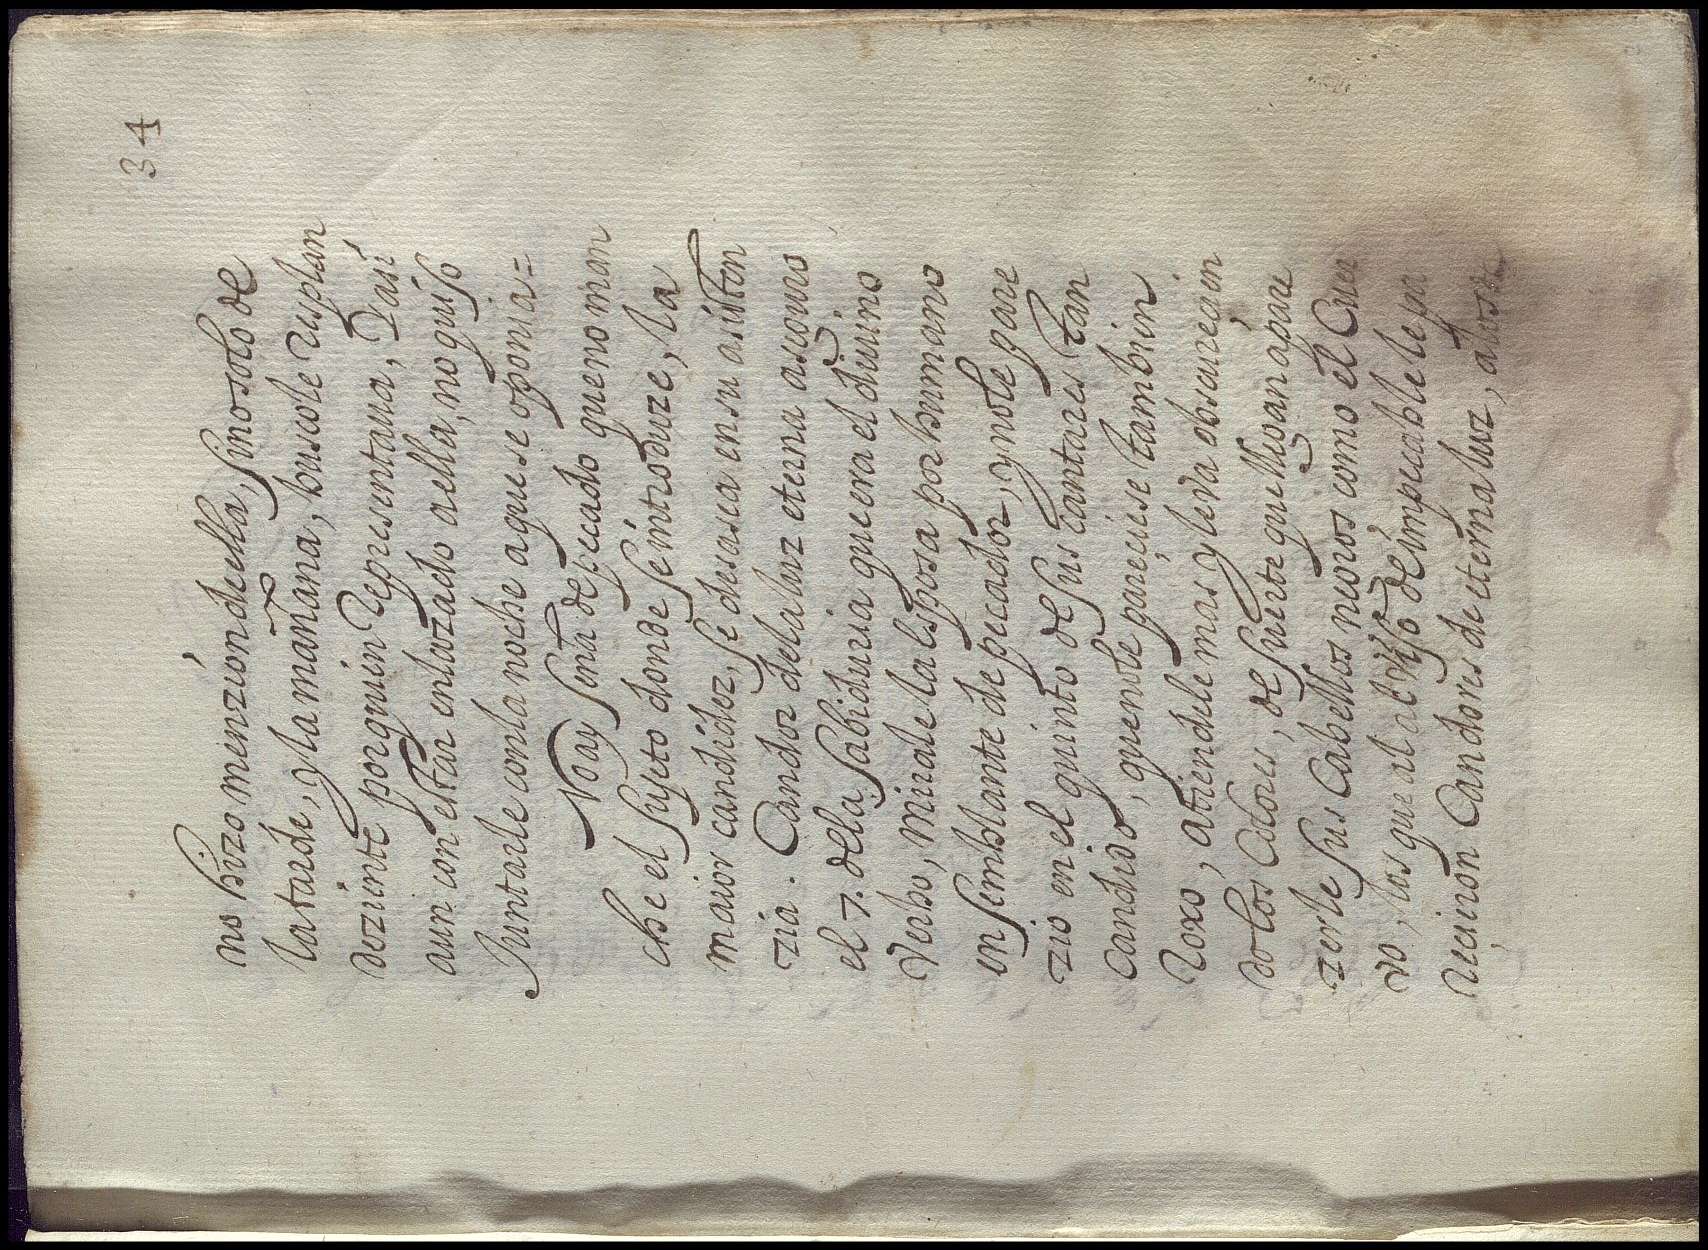 34
no hizo menzion de ella, sino solo de
la tarde, y la mañana, buscole resplan
deziente por quien representaua, Dasi
aun con estar enlazado a ella, no quiso
Juntarle con la noche a que se oponia=
No ay seña de peccado que no man
che el sujeto donde se introduze, la
maior candidez, se desasea en su asisten
zia. Candor de la luz eterna a
el 7. de la sabiduria que era el diuino
Verbo, mirale la esposa por humano
en semblante de pecador, y no le pare
zio en el quinto de sus cantares tan
candido, que no le pareciese tambien
Roxo, atiendele mas y leda obscurecien
do los colores, de suerte que llegan apare
zerle sus cabellos negros como el Cuer
vo, los que al viso de impecable le pa
recieron Candores de eterna luz,